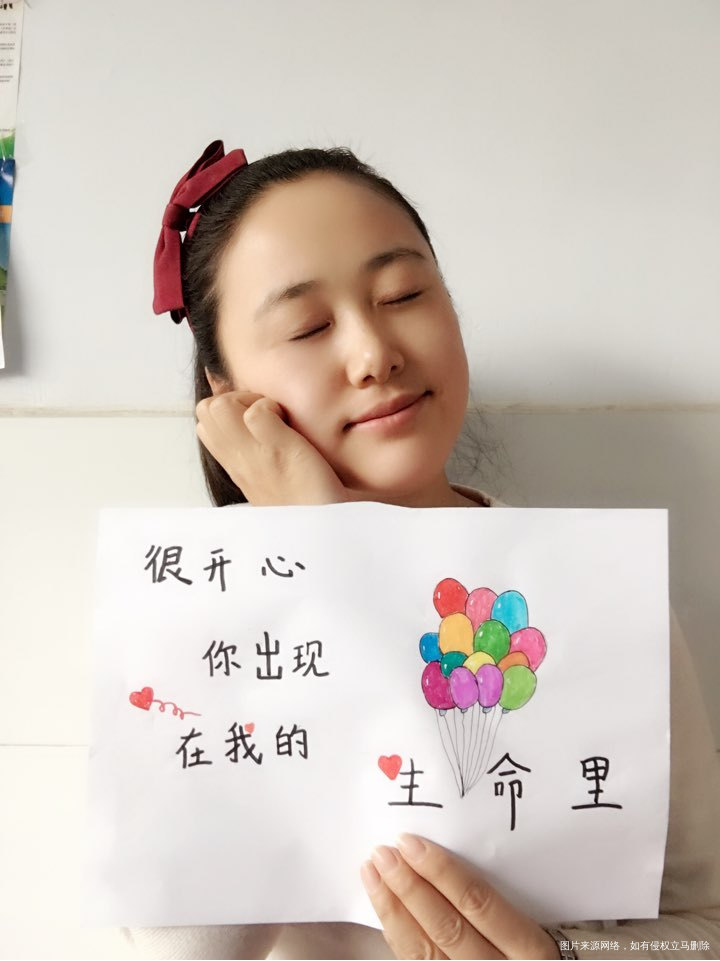 很开心
你出现
在我的
生命里
图片来源网络，如有侵权立马删除